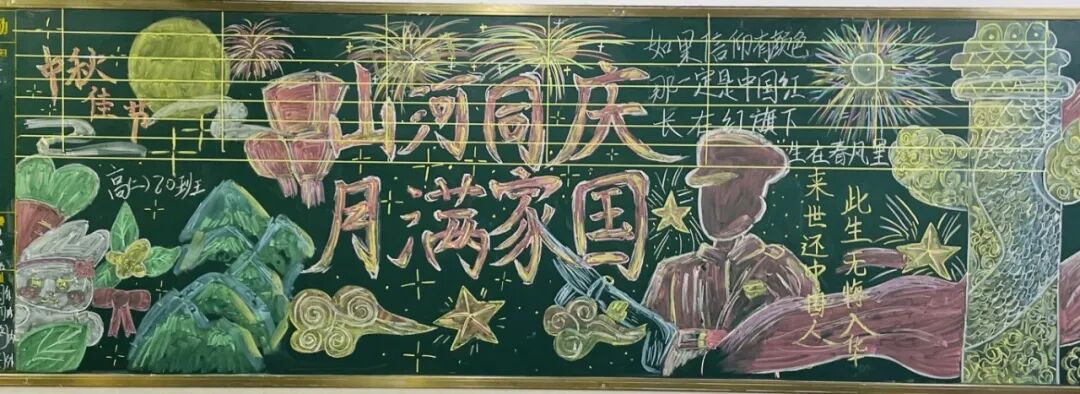 中秋
佳节
山河同庆
月满家国
高(二)20班
如果信仰有颜色
那一定是中国红
长在红旗下
生在春风里
此生无悔入华
来世还中国人